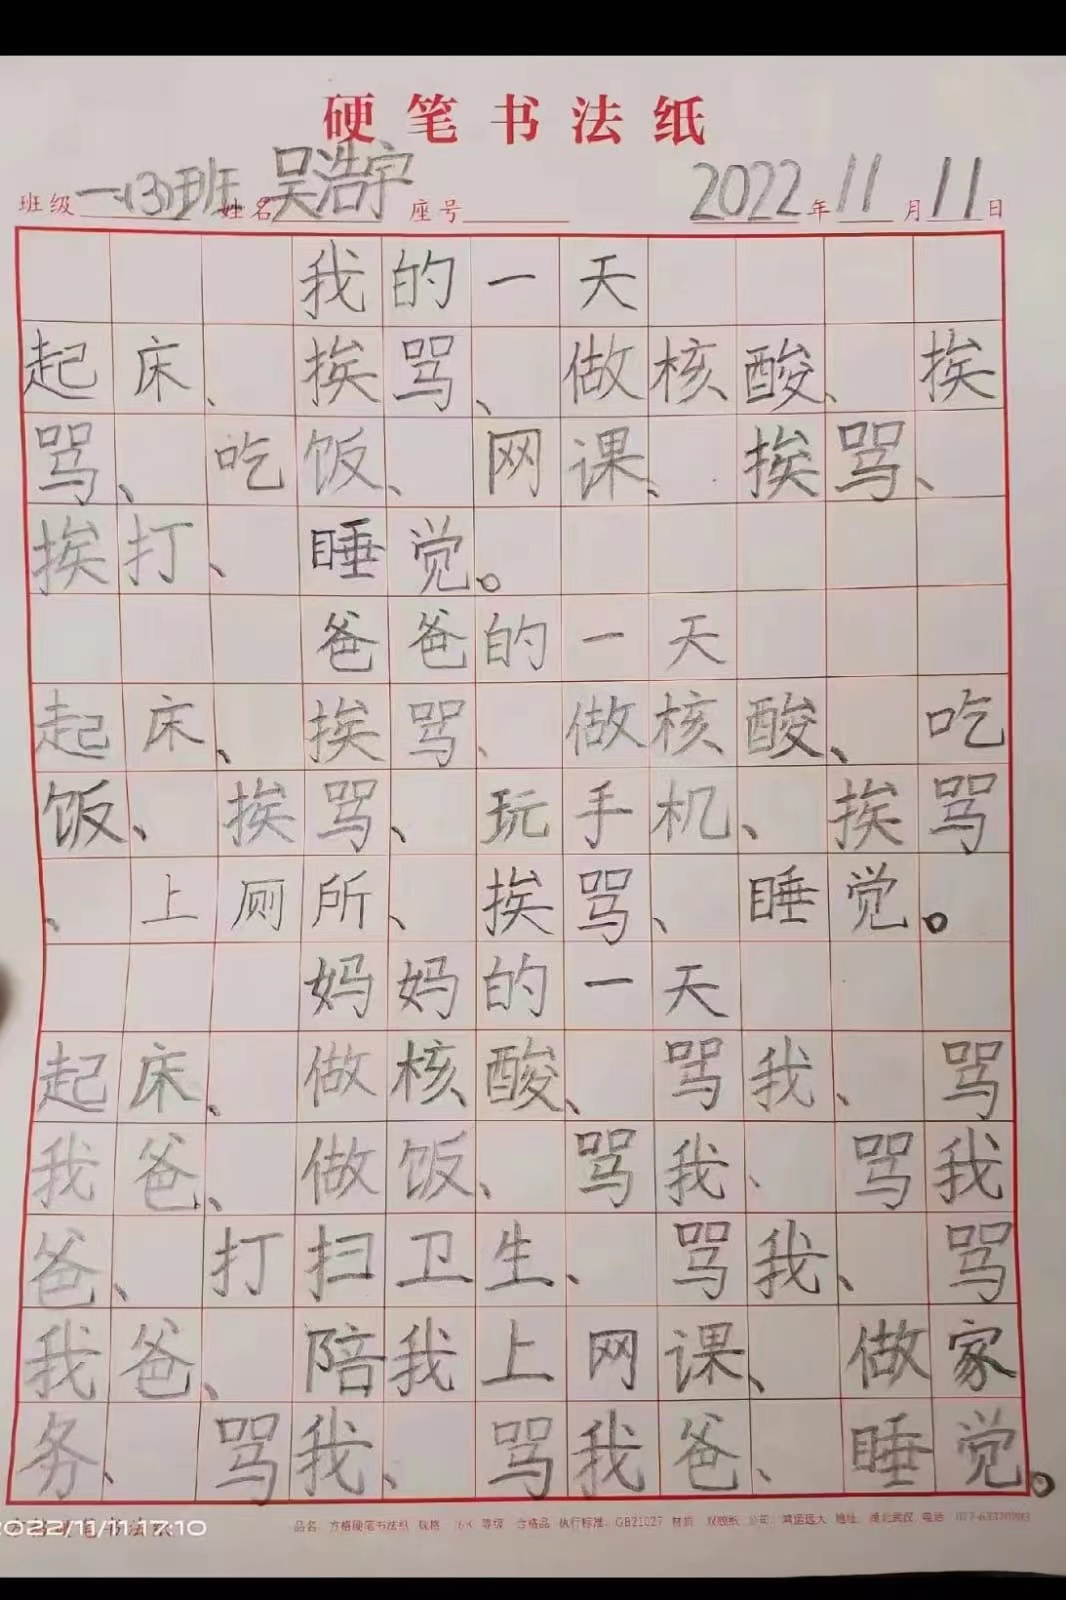 硬笔书法纸
班级 一(3)班 姓名 吴浩宇 座号 2022年11月11日
我的一天
起床、挨骂、做核酸、挨
骂、吃饭、网课、挨骂、
挨打、睡觉。
爸爸的一天
起床、挨骂、做核酸、吃
饭、挨骂、玩手机、挨骂
、上厕所、挨骂、睡觉。
妈妈的一天
起床、做核酸、骂我、骂
我爸、做饭、骂我、骂我
爸、打扫卫生、骂我、骂
我爸、陪我上网课、做家
务、骂我、骂我爸、睡觉。
2022/11/11 17:10
品名：方格硬笔书法纸 规格：16K 等级：合格品 执行标准：GB21027 材质：双胶纸 公司：鸿运远大 地址：湖北武汉 电话：